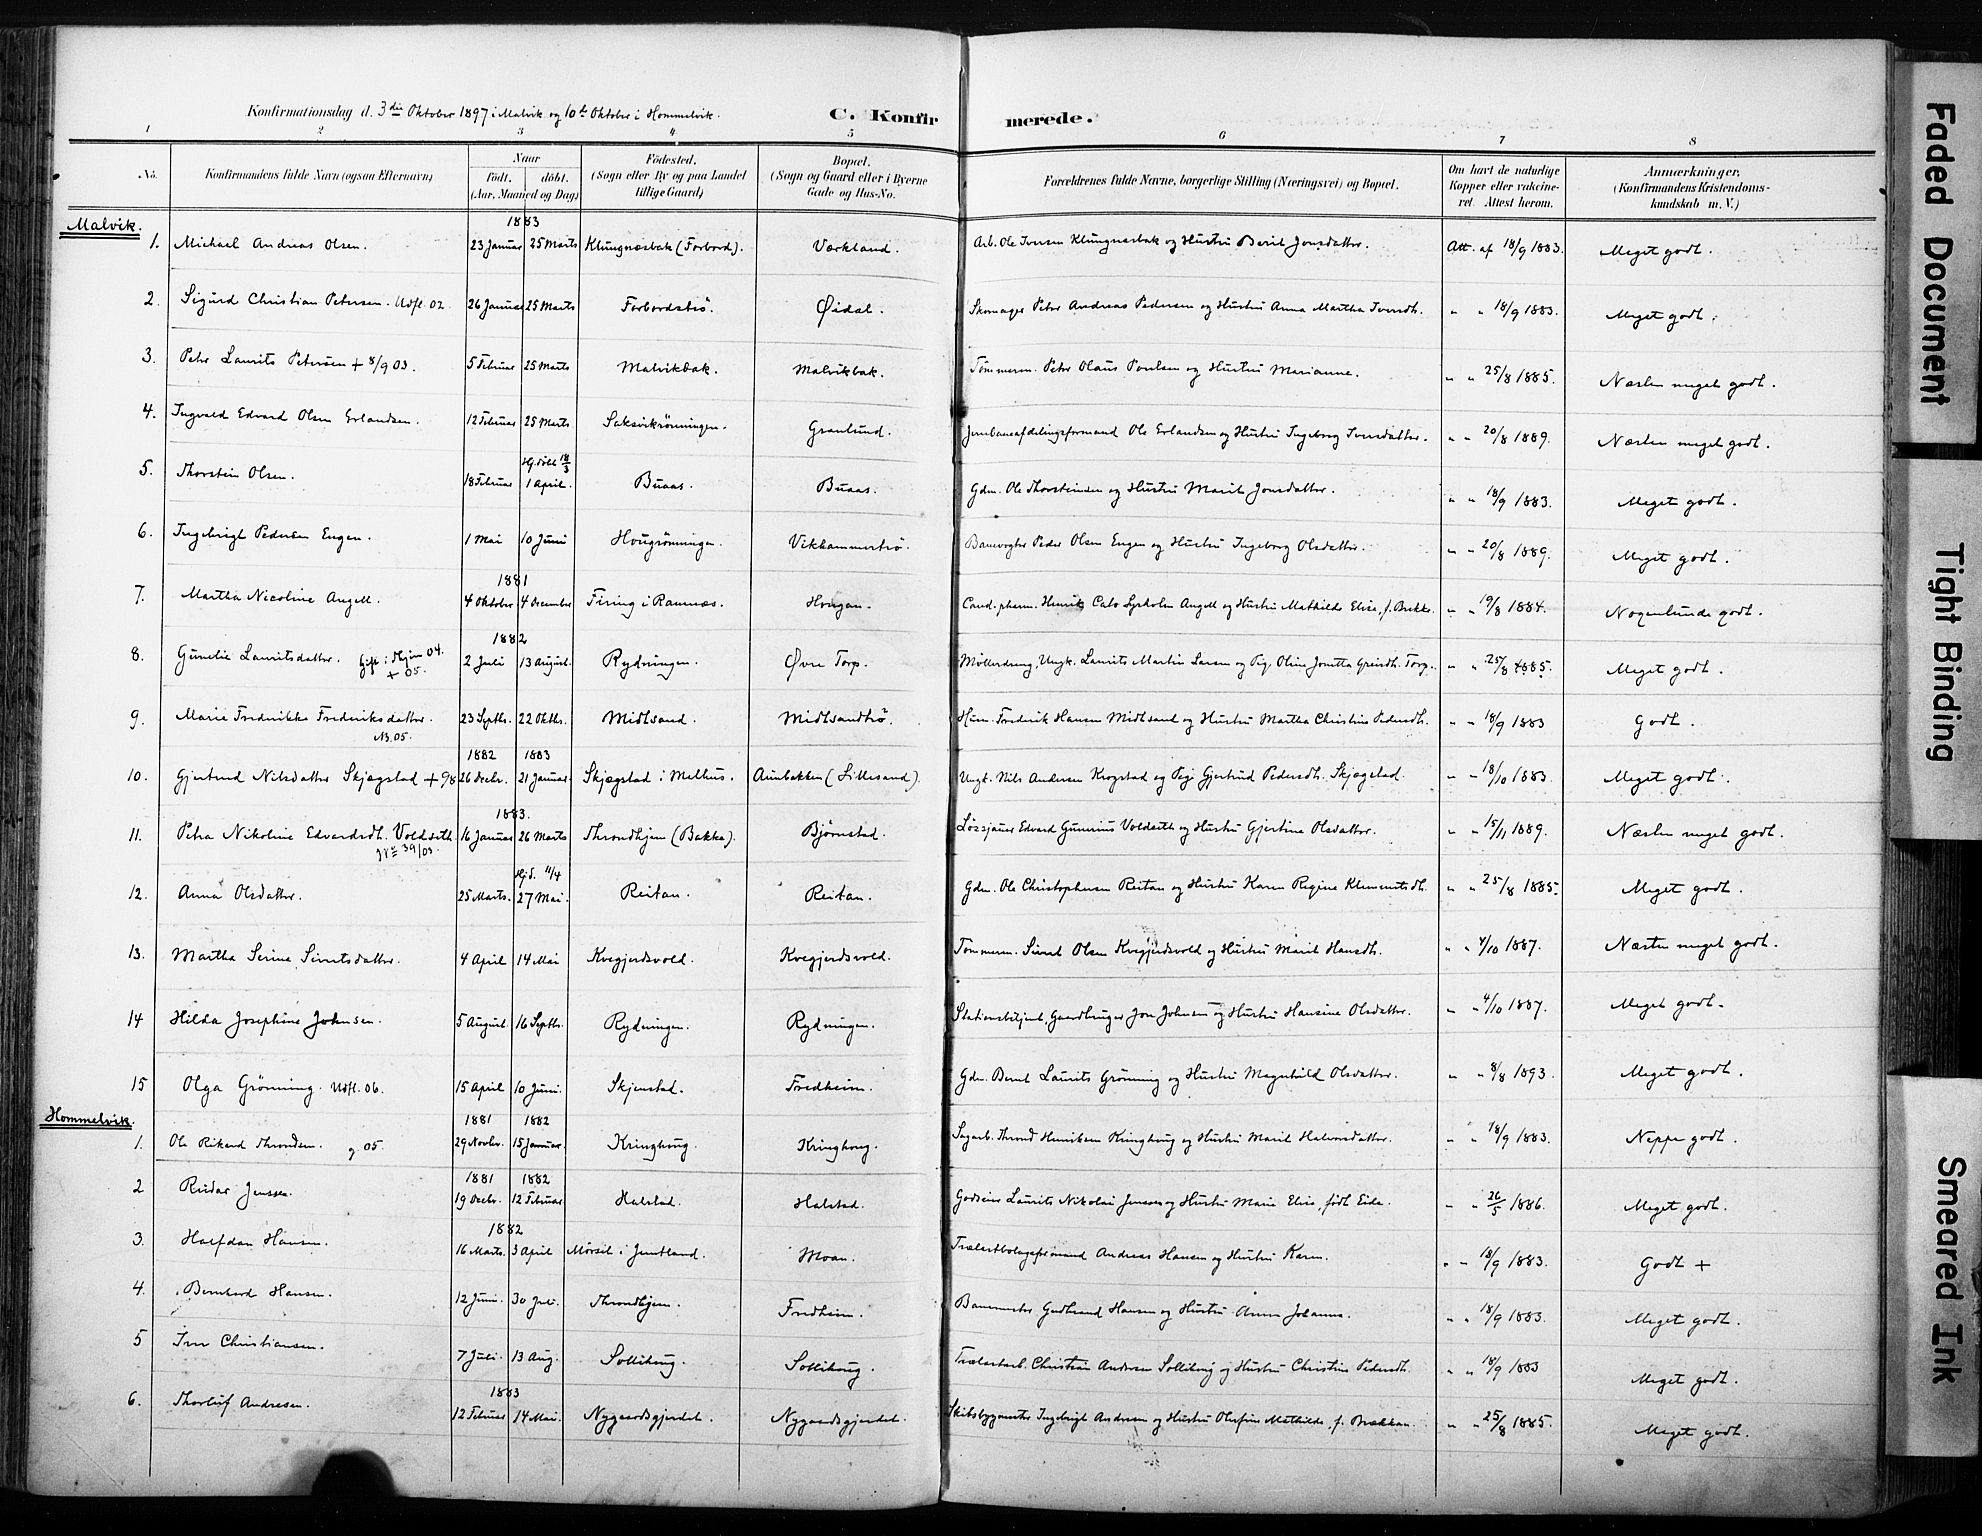 Konfirmationsdag d. 3die Oktober 1897 i Malvik og 10de Oktober i Hommelvik.
C. Konfirmerede.
1 2 3 4 5 6 7 8
No. Konfirmandens fulde Navn (ogsaa Efternavn) Naar født. døbt. (Aar, Maaned og Dag) Fødested. (Sogn eller By og paa Landet tillige Gaard) Bopæl. (Sogn og Gaard eller i Byerne Gade og Hus-No. Forældrenes fulde Navne, borgerlige Stilling (Næringsvei) og Bopæl. Om havt de naturlige Kopper eller vakcineret. Attest herom. Anmærkninger. (Konfirmandens Kristendomskundskab m. V.)
Malvik.
1883
1. Michael Andreas Olsen. 23 Januar 25 Marts Klungnæsbak (Forbord). Værkland. Arb. Ole Iversen Klungnæsbak og Hustru Berit Jonsdatter. Att. af 18/9 1883. Meget godt.
2. Sigurd Christian Petersen. Udfl. 02. 26 Januar 25 Marts Forbordstrø. Øidal. Skomager Peter Andreas Pedersen og Hustru Anna Martha Iversdt. " " 18/9 1883. Meget godt.
3. Peter Laurits Petersen + 8/9 03. 5 Februar 25 Marts Malvikbak. Malvikbak. Tømmerm. Peter Olaus Poulsen og Hustru Marianne. " " 25/8 1885. Næsten meget godt.
4. Ingvald Edvard Olsen Erlandsen. 12 Februar 25 Marts. Saksvikrønningen. Granlund. Jernbaneafdelingsformand Ole Erlandsen og Hustru Ingeborg Iversdatter. " " 20/8 1889. Næsten meget godt.
5. Thorstein Olsen. 18 Februar Hj. døbt 18/3 1 April. Buaas. Buaas. Gdm. Ole Thorsteinsen og Hustru Marit Jonsdatter. " " 18/9 1883. Meget godt.
6. Ingebrigt Pedersen Engen. 1 Mai 10 Juni Hougrønningen. Vikhammertrø. Banevogter Peder Olsen Engen og Hustru Ingeborg Olsdatter. " " 20/8 1889. Meget godt.
1881
7. Martha Nicoline Angell. 4 Oktober 4 December Firing i Ramnæs. Hougan. Cand. pharm. Henrik Cato Lyrholm Angell og Hustru Mathilde Elise, f. Brekke. " " 19/8 1884. Nogenlunde godt.
1882
8. Gunelie Lauritsdatter. Gift i Thjem 04. + 05. 2 Juli 13 August. Rydningen. Øvre Torp. Møllerdreng, Ungk. Laurits Martin Larsen og Pig. Oline Jonetta Greisdt. Torp. " " 25/8 1885. Meget godt.
9. Marie Fredrikke Frederiksdatter. N. 05. 23 Septbr. 22 Oktbr. Midtsand. Midtsandtrø. Husm. Frederik Hansen Midtsand og Hustru Martha Christine Pedersdt. " " 18/9 1883 Godt.
1882 1883
10. Gjertrud Nilsdatter Skjægstad + 98 26 Decbr. 21 Januar. Skjægstad i Melhus. Aunbakken (Lillesand). Ungk. Nils Andersen Krogstad og Pige Gjertrud Pedersdt. Skjægstad. " " 18/10 1883. Meget godt.
1883.
11. Petra Nikoline Edvardsdt. Voldseth. No 39/03. 16 Januar 26 Marts Throndhjem (Bakke). Bjørnstad. Løssjauer Edvard Gunerius Voldseth og Hustru Gjertine Olsdatter. " " 15/11 1889. Næsten meget godt.
12. Anna Olsdatter. 25 Marts. Hj.d. 11/4 27 Mai. Reitan. Reitan. Gdm. Ole Christophersen Reitan og Hustru Karen Regine Klemmetsdt. " " 25/8 1885. Meget godt.
13. Martha Serine Sivertsdatter. 4 April 14 Mai Kvegjerdsvold. Kvegjerdsvold. Tømmerm. Sivert Olsen Kvegjerdsvold og Hustru Marit Hansdt. " " 4/10 1887. Næsten meget godt.
14 Hilda Josephine Johnsen. 5 August. 16 Septbr. Rydningen. Rydningen. Stationsbetjent, Gaardbruger Jon Johnsen og Hustru Hansine Olsdatter. " " 4/10 1887. Meget godt.
15 Olga Grønning. Udfl. 06. 15 April 10 Juni. Skjenstad. Fredheim. Gdm. Bernt Laurits Grønning og Hustru Magnhild Olsdatter. " " 8/8 1893. Meget godt.
Hommelvik.
1881 1882
1. Ole Rikard Throndsen. g. 05. 29 Novbr. 15 Januar. Kringhoug. Kringhoug. Sagarb. Thrond Henriksen Kringhoug og Hustru Marit Halvorsdatter. " " 18/9 1883. Neppe godt.
1881 1882
2 Reidar Jenssen. 19 Decbr. 12 Februar Halstad. Halstad. Godseier Laurits Nikolai Jenssen og Hustru Marie Elise, født Eide. " " 26/5 1886. Meget godt.
1882
3. Halfdan Hansen. 16 Marts. 3 April Mørsil i Jemtland. Moan. Trælastbolagsformand Andreas Hansen og Hustru Karen. " " 18/9 1883. Godt +
4. Bernhard Hansen. 12 Juni. 30 Juli. Throndhjem. Fredheim. Banemester Gudbrand Hansen og Hustru Anna Johanna. " " 18/9 1883. Meget godt.
5 Iver Christiansen. 7 Juli. 13 Aug. Sollihoug. Sollihoug. Trælastarb. Christian Andersen Sollihoug og Hustru Christine Pedersdt. " " 18/9 1883 Meget godt.
1883
6. Thorleif Andresen. 12 Februar 14 Mai. Nygaardsgjerdet. Nygaardsgjerdet. Skibsbygmester Ingebrigt Andresen og Hustru Olufine Mathilde, f. Brækkan. " " 25/8 1885. Meget godt.
Faded Document
Tight Binding
Smeared Ink